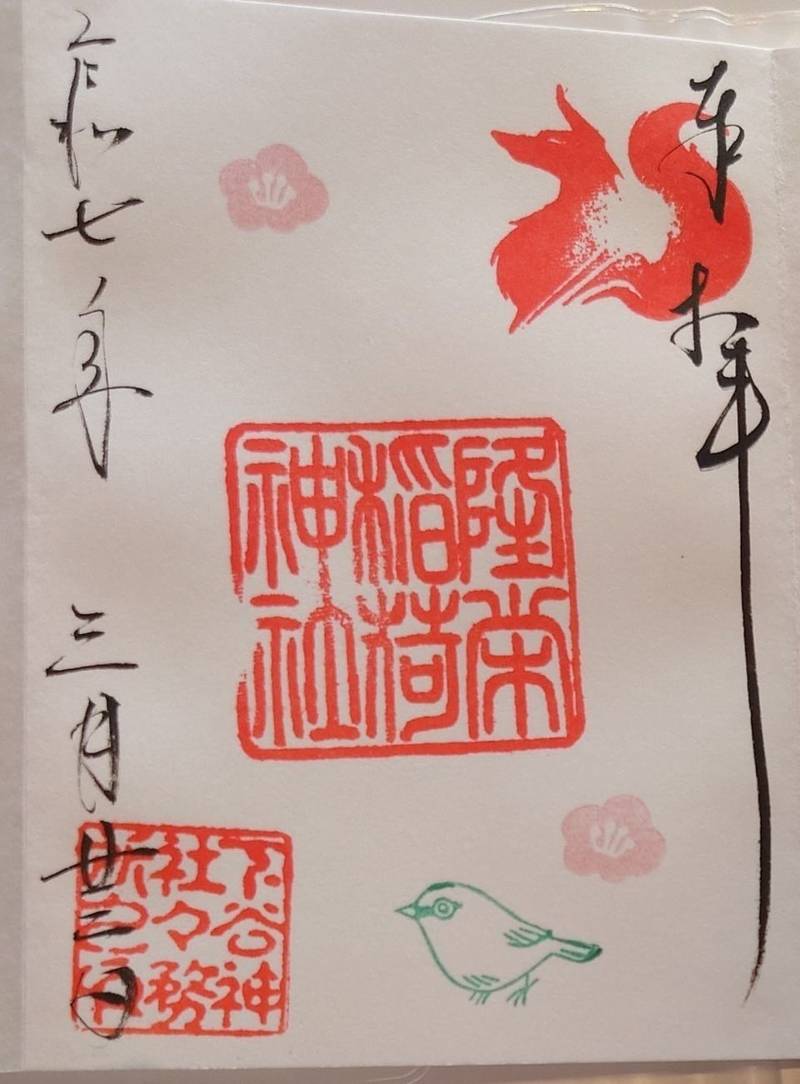 奉拝
隆栄
稲荷
神社
令和七年 三月廿三日
下谷神
社々務
所之印